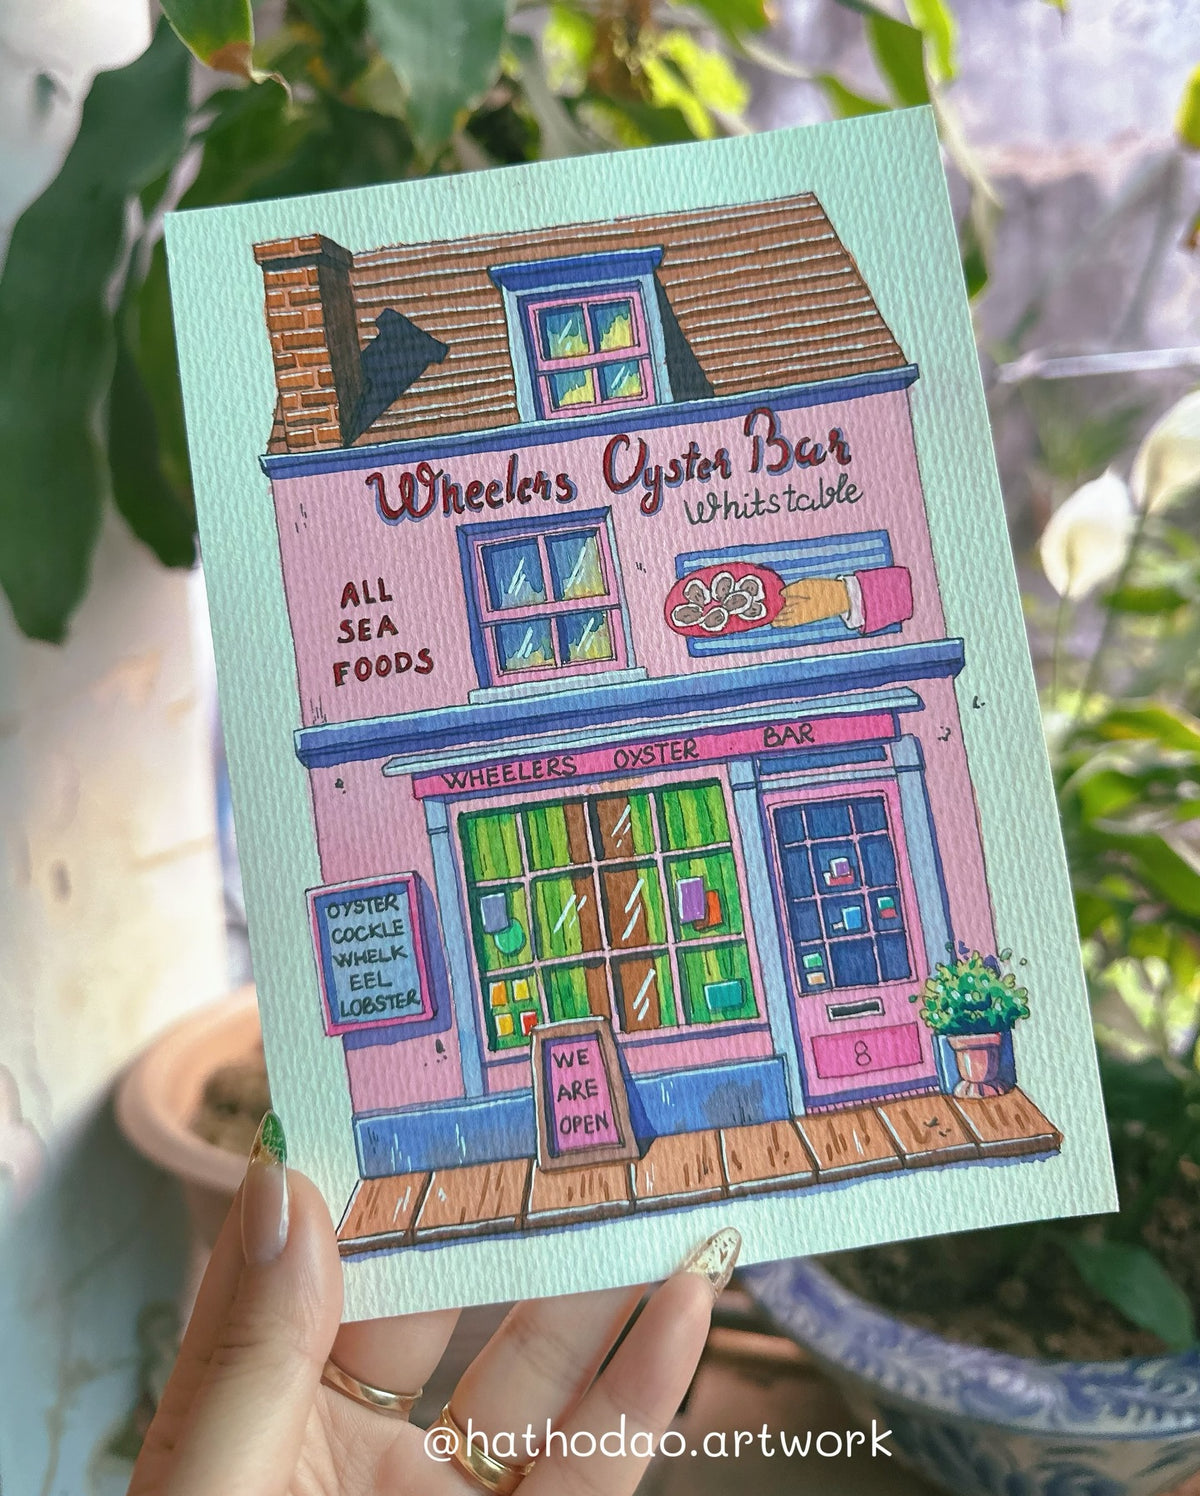 Wheelers Oyster Bar
Whitstable
ALL
SEA
FOODS
WHEELERS OYSTER BAR
OYSTER
COCKLE
WHELK
EEL
LOBSTER
8
WE
ARE
OPEN
@hathodao.artwork